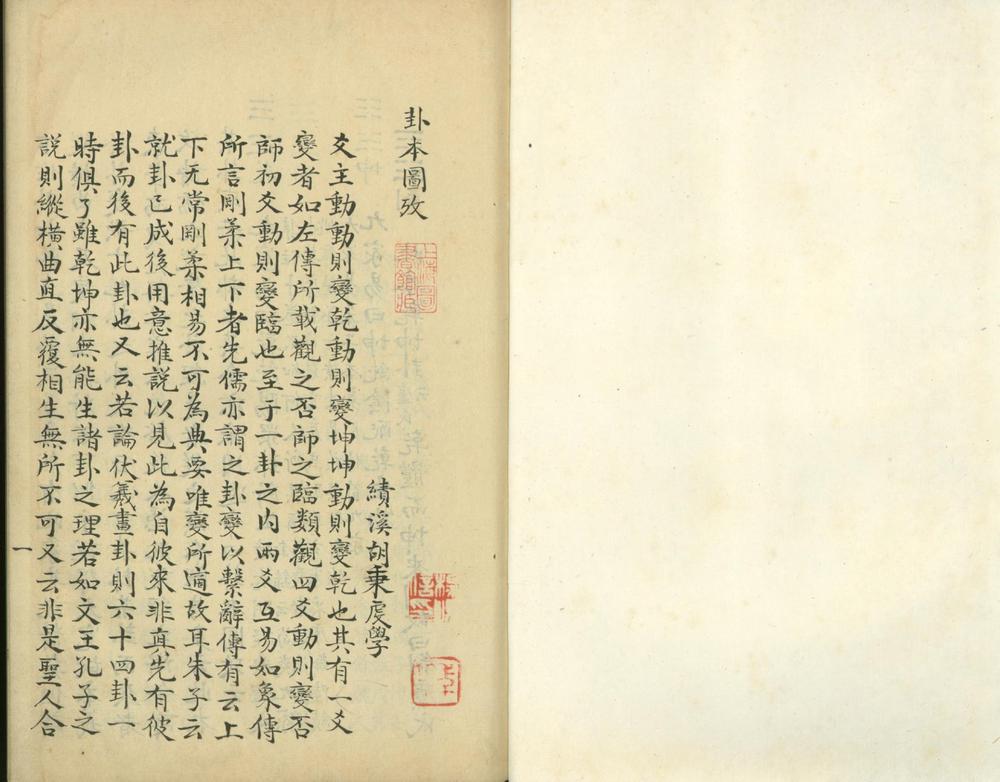 卦本圖攷
績溪胡秉虔學
爻主動動則變乾動則變坤坤動則變乾也其有一爻
變者如左傳所載觀之否師之臨類觀四爻動則變否
師初爻動則變臨也至于一卦之內兩爻互易如彖傳
所言剛柔上下者先儒亦謂之卦變以繫辭傳有云上
下无常剛柔相易不可為典要唯變所適故耳朱子云
就卦已成後用意推說以見此為自彼來非真先有彼
卦而後有此卦也又云若論伏羲畫卦則六十四卦一
時俱了雖乾坤亦無能生諸卦之理若如文王孔子之
說則縱橫曲直反覆相生無所不可又云非是聖人合
一
上海圖
書館藏